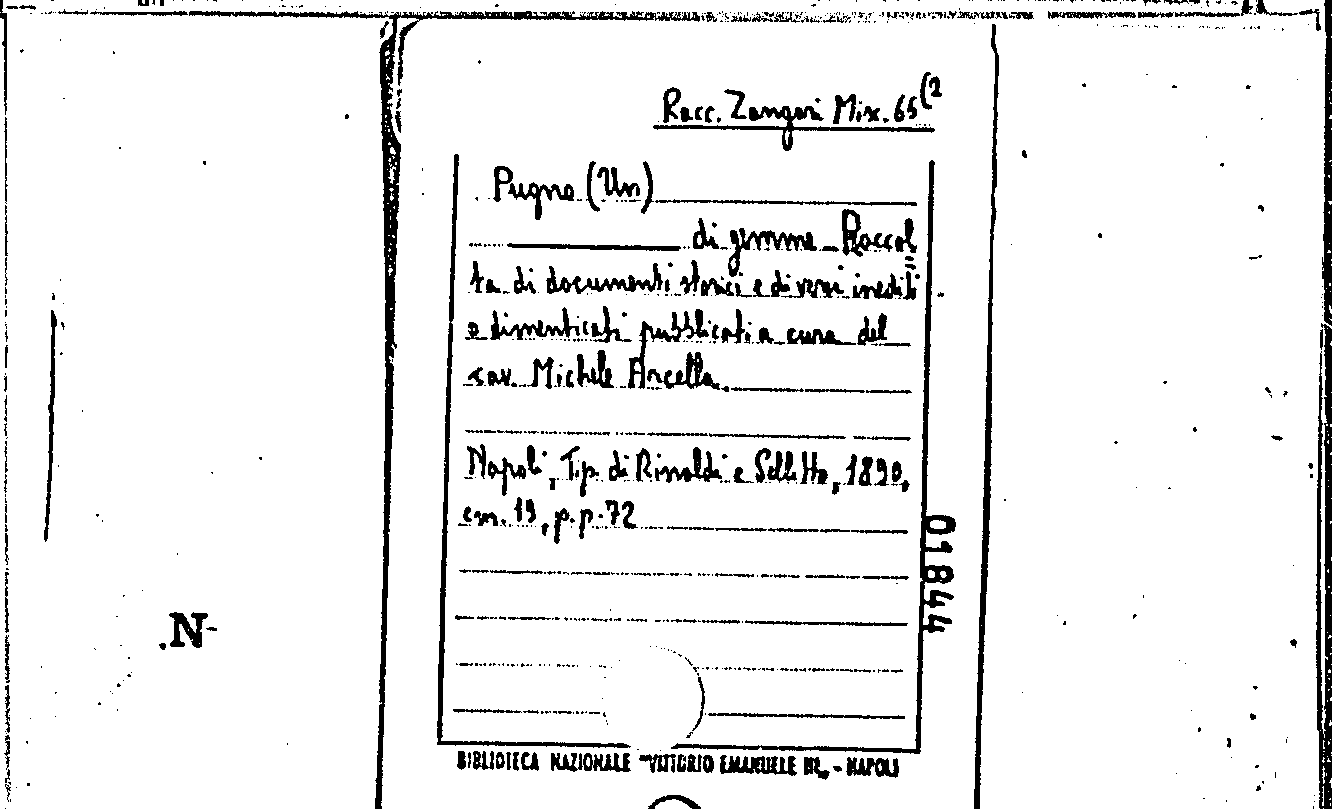 Racc. Zangari Mix. 65(2
Pugno (Un)
di gemme Raccol
ta di documenti storici e di versi inediti
o dimenticati pubblicati a cura del
cav. Michele Arcella.
Napoli, Tip. di Rinaldi e Sellitto, 1890,
cm. 19, p.p. 72
01844
.N-
BIBLIOTECA NAZIONALE "VITTORIO EMANUELE III„ - NAPOLI